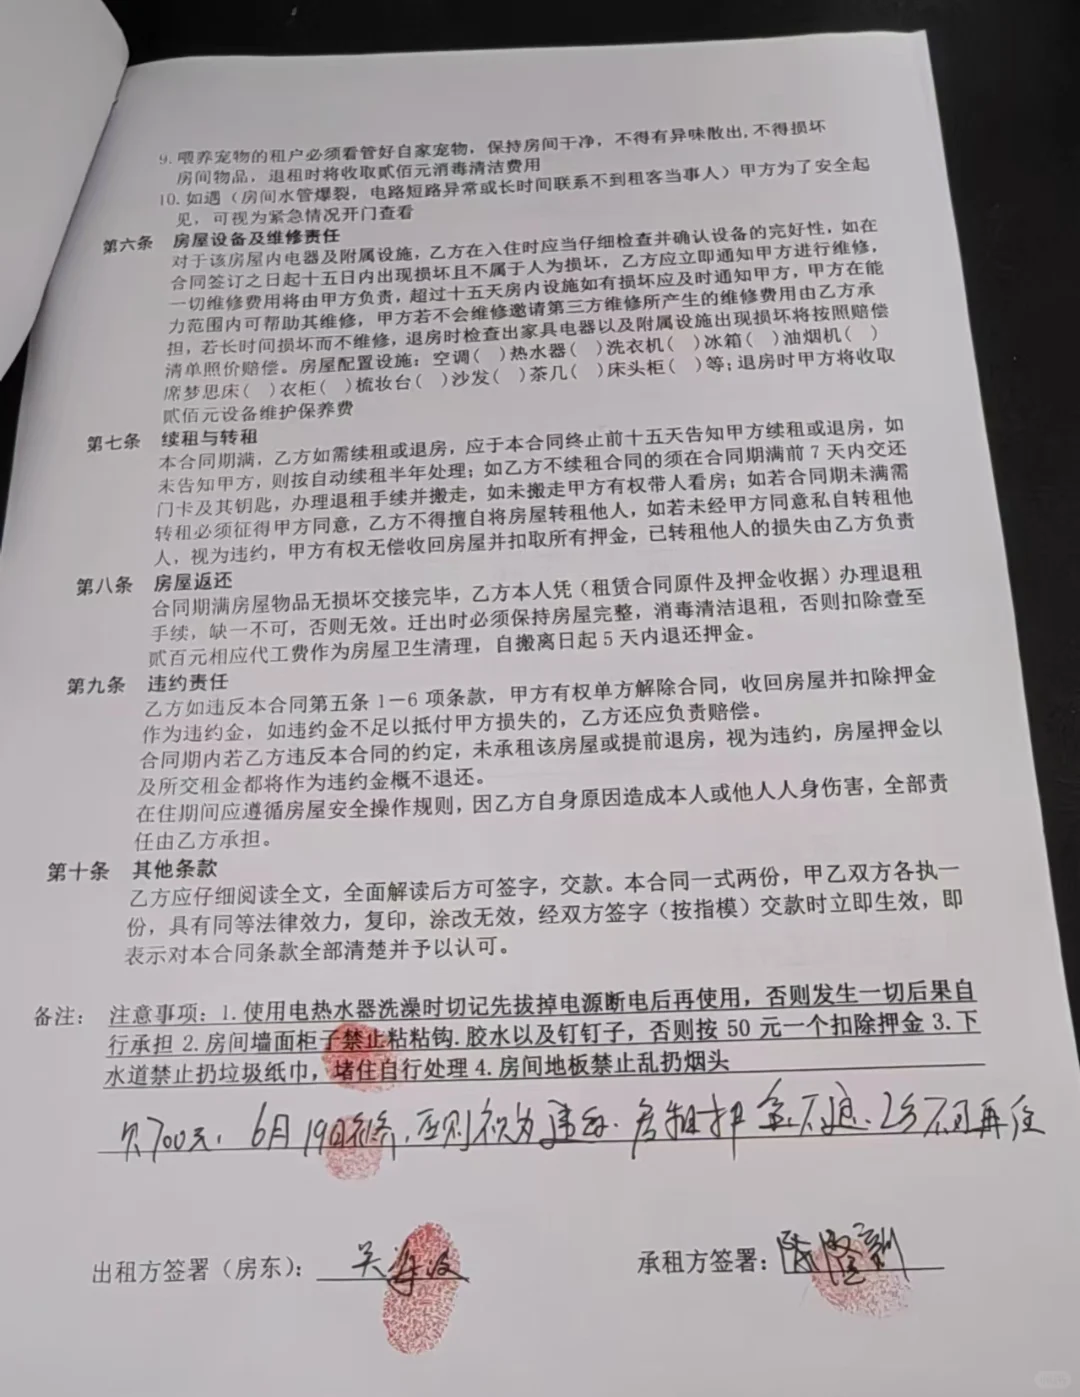 9. 喂养宠物的租户必须看管好自家宠物，保持房间干净，不得有异味散出,不得损坏
房间物品，退租时将收取贰佰元消毒清洁费用
10. 如遇（房间水管爆裂，电路短路异常或长时间联系不到租客当事人）甲方为了安全起
见，可视为紧急情况开门查看
第六条 房屋设备及维修责任
对于该房屋内电器及附属设施，乙方在入住时应当仔细检查并确认设备的完好性，如在
合同签订之日起十五日内出现损坏且不属于人为损坏，乙方应立即通知甲方进行维修，
一切维修费用将由甲方负责，超过十五天房内设施如有损坏应及时通知甲方，甲方在能
力范围内可帮助其维修，甲方若不会维修邀请第三方维修所产生的维修费用由乙方承
担，若长时间损坏而不维修，退房时检查出家具电器以及附属设施出现损坏将按照赔偿
清单照价赔偿。房屋配置设施：空调( )热水器( )洗衣机( )冰箱( )油烟机( )
席梦思床( )衣柜( )梳妆台( )沙发( )茶几( )床头柜( )等；退房时甲方将收取
贰佰元设备维护保养费
第七条 续租与转租
本合同期满，乙方如需续租或退房，应于本合同终止前十五天告知甲方续租或退房，如
未告知甲方，则按自动续租半年处理；如乙方不续租合同的须在合同期满前 7 天内交还
门卡及其钥匙，办理退租手续并搬走，如未搬走甲方有权带人看房；如若合同期未满需
转租必须征得甲方同意，乙方不得擅自将房屋转租他人，如若未经甲方同意私自转租他
人，视为违约，甲方有权无偿收回房屋并扣取所有押金，已转租他人的损失由乙方负责
第八条 房屋返还
合同期满房屋物品无损坏交接完毕，乙方本人凭（租赁合同原件及押金收据）办理退租
手续，缺一不可，否则无效。迁出时必须保持房屋完整，消毒清洁退租，否则扣除壹至
贰百元相应代工费作为房屋卫生清理，自搬离日起 5 天内退还押金。
第九条 违约责任
乙方如违反本合同第五条 1－6 项条款，甲方有权单方解除合同，收回房屋并扣除押金
作为违约金，如违约金不足以抵付甲方损失的，乙方还应负责赔偿。
合同期内若乙方违反本合同的约定，未承租该房屋或提前退房，视为违约，房屋押金以
及所交租金都将作为违约金概不退还。
在住期间应遵循房屋安全操作规则，因乙方自身原因造成本人或他人人身伤害，全部责
任由乙方承担。
第十条 其他条款
乙方应仔细阅读全文，全面解读后方可签字，交款。本合同一式两份，甲乙双方各执一
份，具有同等法律效力，复印，涂改无效，经双方签字（按指模）交款时立即生效，即
表示对本合同条款全部清楚并予以认可。
备注： 注意事项：1.使用电热水器洗澡时切记先拔掉电源断电后再使用，否则发生一切后果自
行承担 2.房间墙面柜子禁止粘粘钩.胶水以及钉钉子，否则按 50 元一个扣除押金 3.下
水道禁止扔垃圾纸巾，堵住自行处理 4.房间地板禁止乱扔烟头
欠700元，6月19日 否则视为违约. 房租押金不退. 不可再住
出租方签署（房东）： 关
承租方签署： 陈